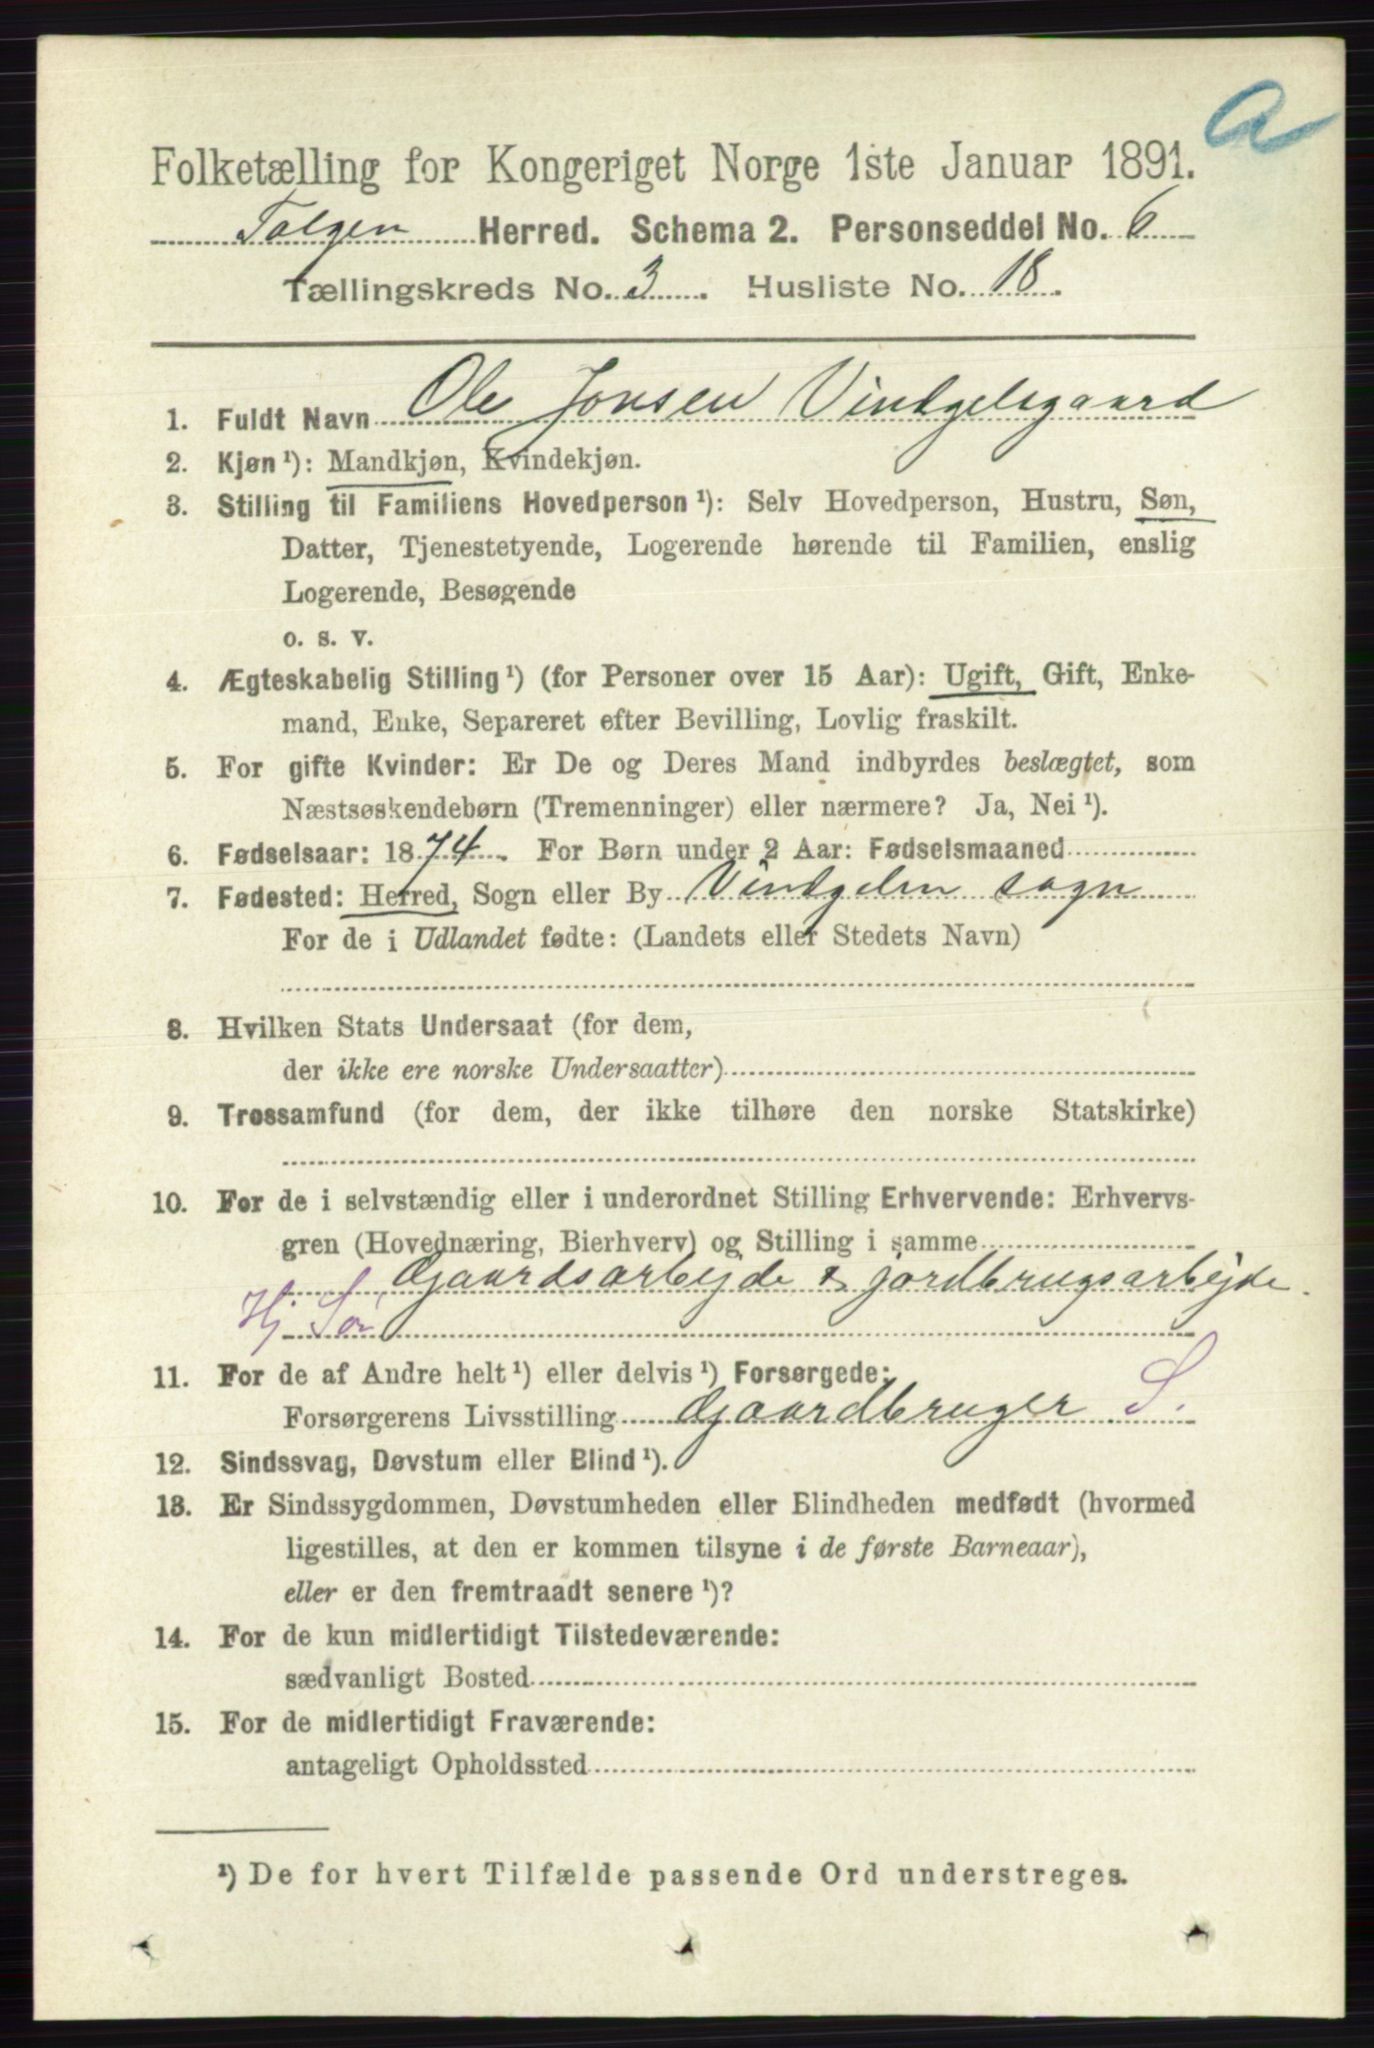 a
Folketælling for Kongeriget Norge 1ste Januar 1891.
Tolgen Herred. Schema 2. Personseddel No. 6
Tællingskreds No. 3. Husliste No. 18.
1. Fuldt Navn Ole Jonsen Vindgelsgaard
2. Kjøn ¹): Mandkjøn, Kvindekjøn.
3. Stilling til Familiens Hovedperson ¹): Selv Hovedperson, Hustru, Søn,
Datter, Tjenestetyende, Logerende hørende til Familien, enslig
Logerende, Besøgende
o. s. v.
4. Ægteskabelig Stilling ¹) (for Personer over 15 Aar): Ugift, Gift, Enke-
mand, Enke, Separeret efter Bevilling, Lovlig fraskilt.
5. For gifte Kvinder: Er De og Deres Mand indbyrdes beslægtet, som
Næstsøskendebørn (Tremenninger) eller nærmere? Ja, Nei ¹).
6. Fødselsaar: 1874. For Børn under 2 Aar: Fødselsmaaned
7. Fødested: Herred, Sogn eller By Vindgelen sogn
For de i Udlandet fødte: (Landets eller Stedets Navn)
8. Hvilken Stats Undersaat (for dem,
der ikke ere norske Undersaatter)
9. Trossamfund (for dem, der ikke tilhøre den norske Statskirke)
10. For de i selvstændig eller i underordnet Stilling Erhvervende: Erhvervs-
gren (Hovednæring, Bierhverv) og Stilling i samme
Gaardsarbejde & jordbrugsarbejde.
Hj Sø
11. For de af Andre helt ¹) eller delvis ¹) Forsørgede:
Forsørgerens Livsstilling Gaardbruger S.
12. Sindssvag, Døvstum eller Blind ¹).
13. Er Sindssygdommen, Døvstumheden eller Blindheden medfødt (hvormed
ligestilles, at den er kommen tilsyne i de første Barneaar),
eller er den fremtraadt senere ¹)?
14. For de kun midlertidigt Tilstedeværende:
sædvanligt Bosted
15. For de midlertidigt Fraværende:
antageligt Opholdssted
¹) De for hvert Tilfælde passende Ord understreges.